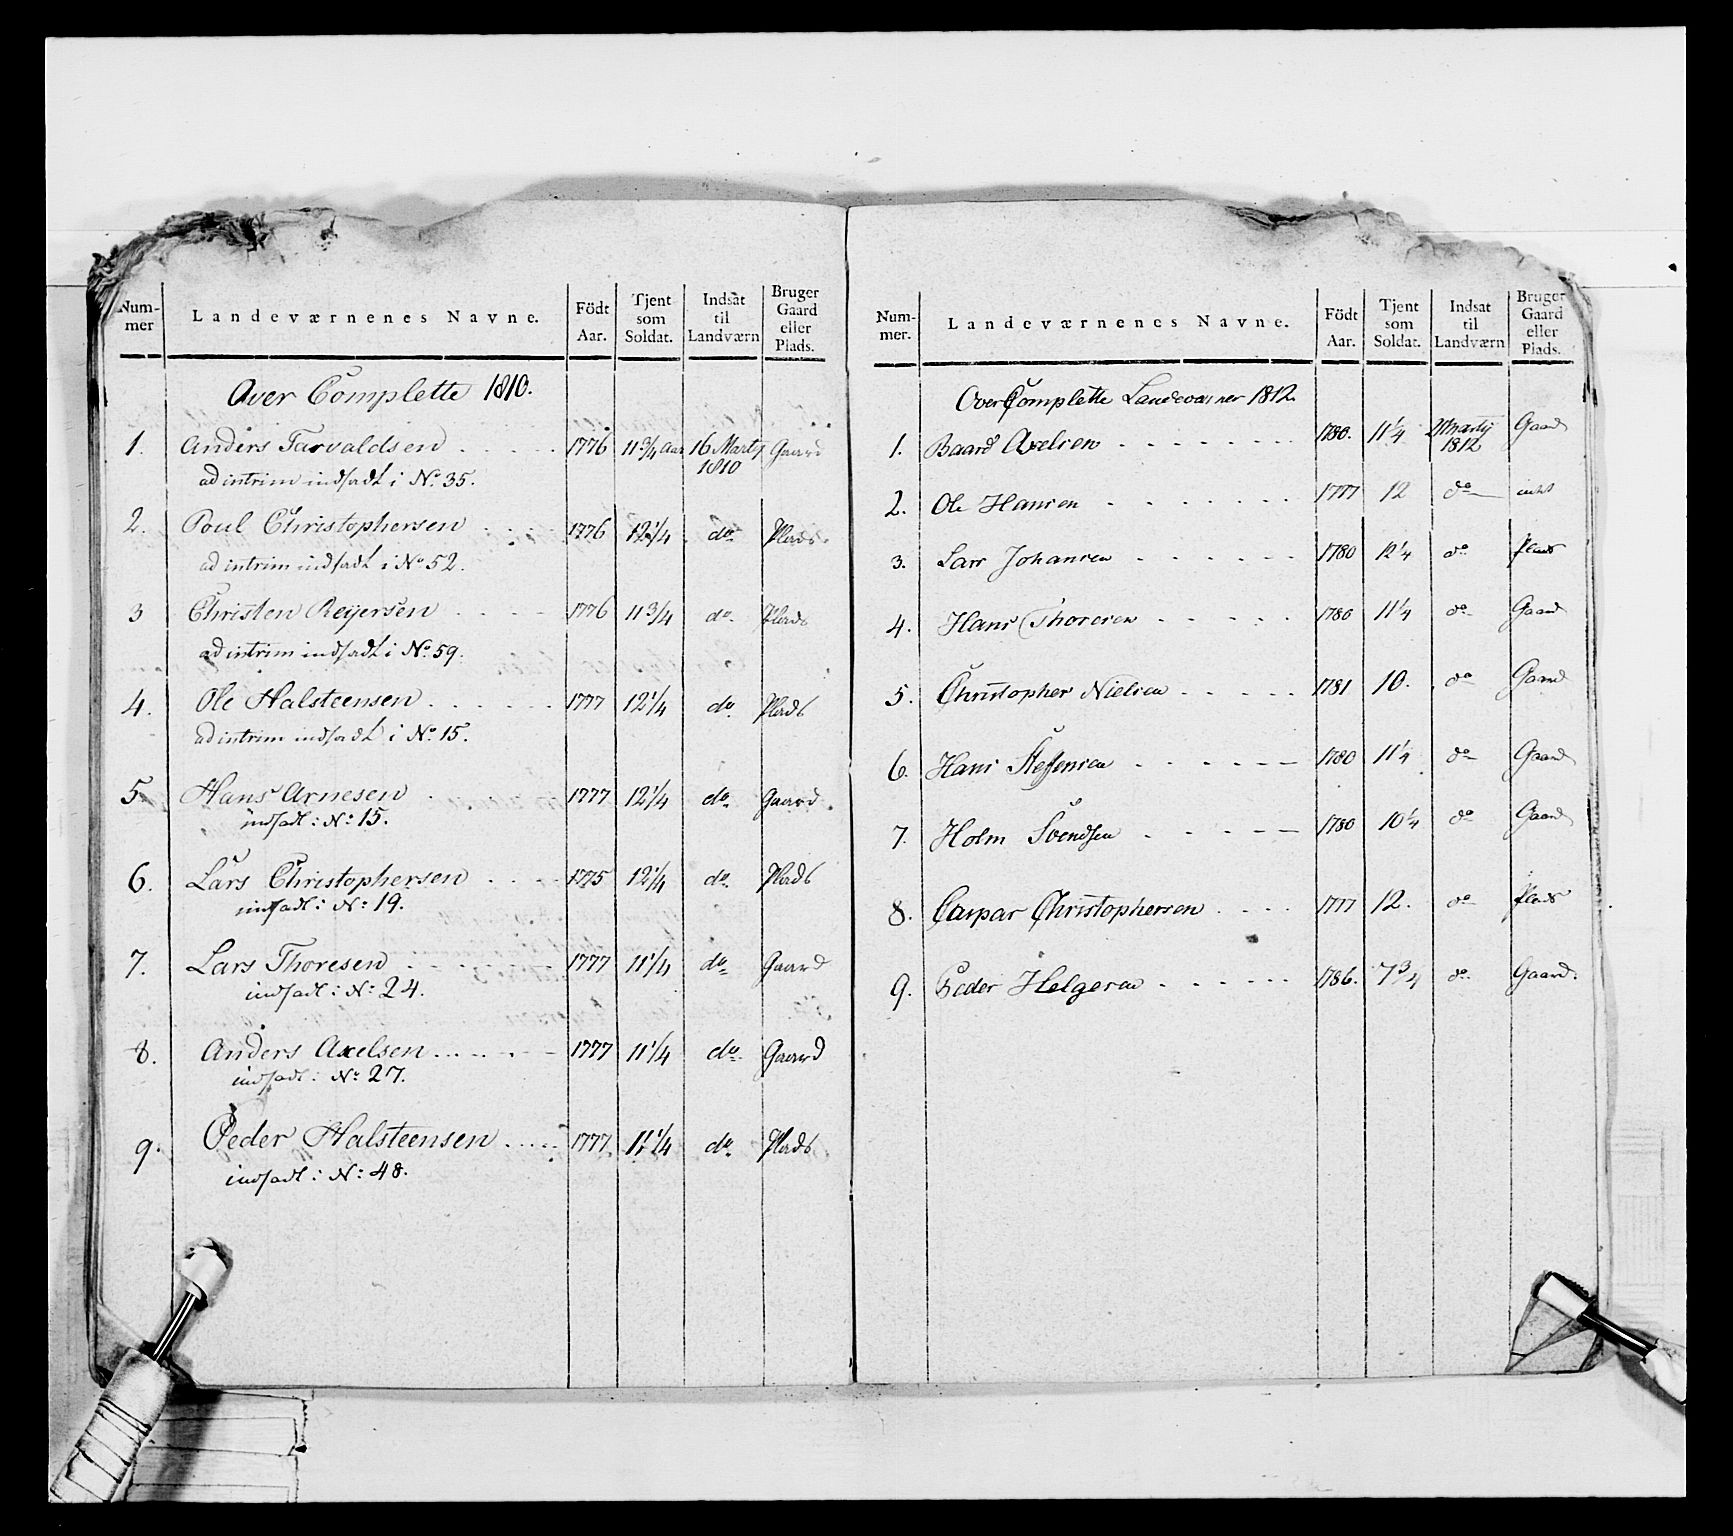 Num-
mer
Landeværnenes Navne.
Födt
Aar.
Tjent
som
Soldat.
Indsat
til
Landværn
Bruger
Gaard
eller
Plads.
Over Complette 1810.
1. Anders Tarvaldsen 1776 11 3/4 Aar 16 Martj Gaard
1810
ad intrim indsadt i No. 35.
2. Poul Christophersen 1776 12 1/4 do. Plads.
ad intrim indsadt i No 52.
3 Christen Reijersen 1776 11 3/4 do. Plads
ad intrim indsadt i No. 59.
4. Ole Halsteensen 1777 12 1/4 do. Plads
ad intrim indsadt i No. 15.
5 Hans Arnesen 1777 12 1/4 do. Gaard.
indsadt: No: 15.
6. Lars Christophersen 1775 12 1/4 do. Plads
indsadt: No: 19.
7. Lars Thoresen 1777 11 1/4 do. Gaard
indsadt: No: 24.
8. Anders Axelsen 1777 11 1/4 do. Gaard
indsadt: No: 27.
9. Peder Halsteensen 1777 11 1/4 do. Plads
indsadt: No: 48.
Num-
mer.
Landeværnenes Navne.
Födt
Aar.
Tjent
som
Soldat.
Indsat
til
Landværn
Bruger
Gaard
eller
Plads.
Over Complette Landeværner 1812.
1. Baard Axelsen 1780. 11 1/4 Martij Gaard
1812
2. Ole Hansen 1777 12 do intet
3. Lars Johansen 1780 12 1/4 do Plads
4. Hans Thoresen 1780 11 1/4 do Gaard
5. Christopher Nielsen 1781 10. do Gaard
6. Hans Steffensen 1780 11 1/4 do Gaard
7. Holm Svendsen 1780 10 1/4 do Gaard
8. Caspar Christophersen 1777 12. do Plads
9. Peder Helgesen 1786. 7 3/4 do. Gaard.